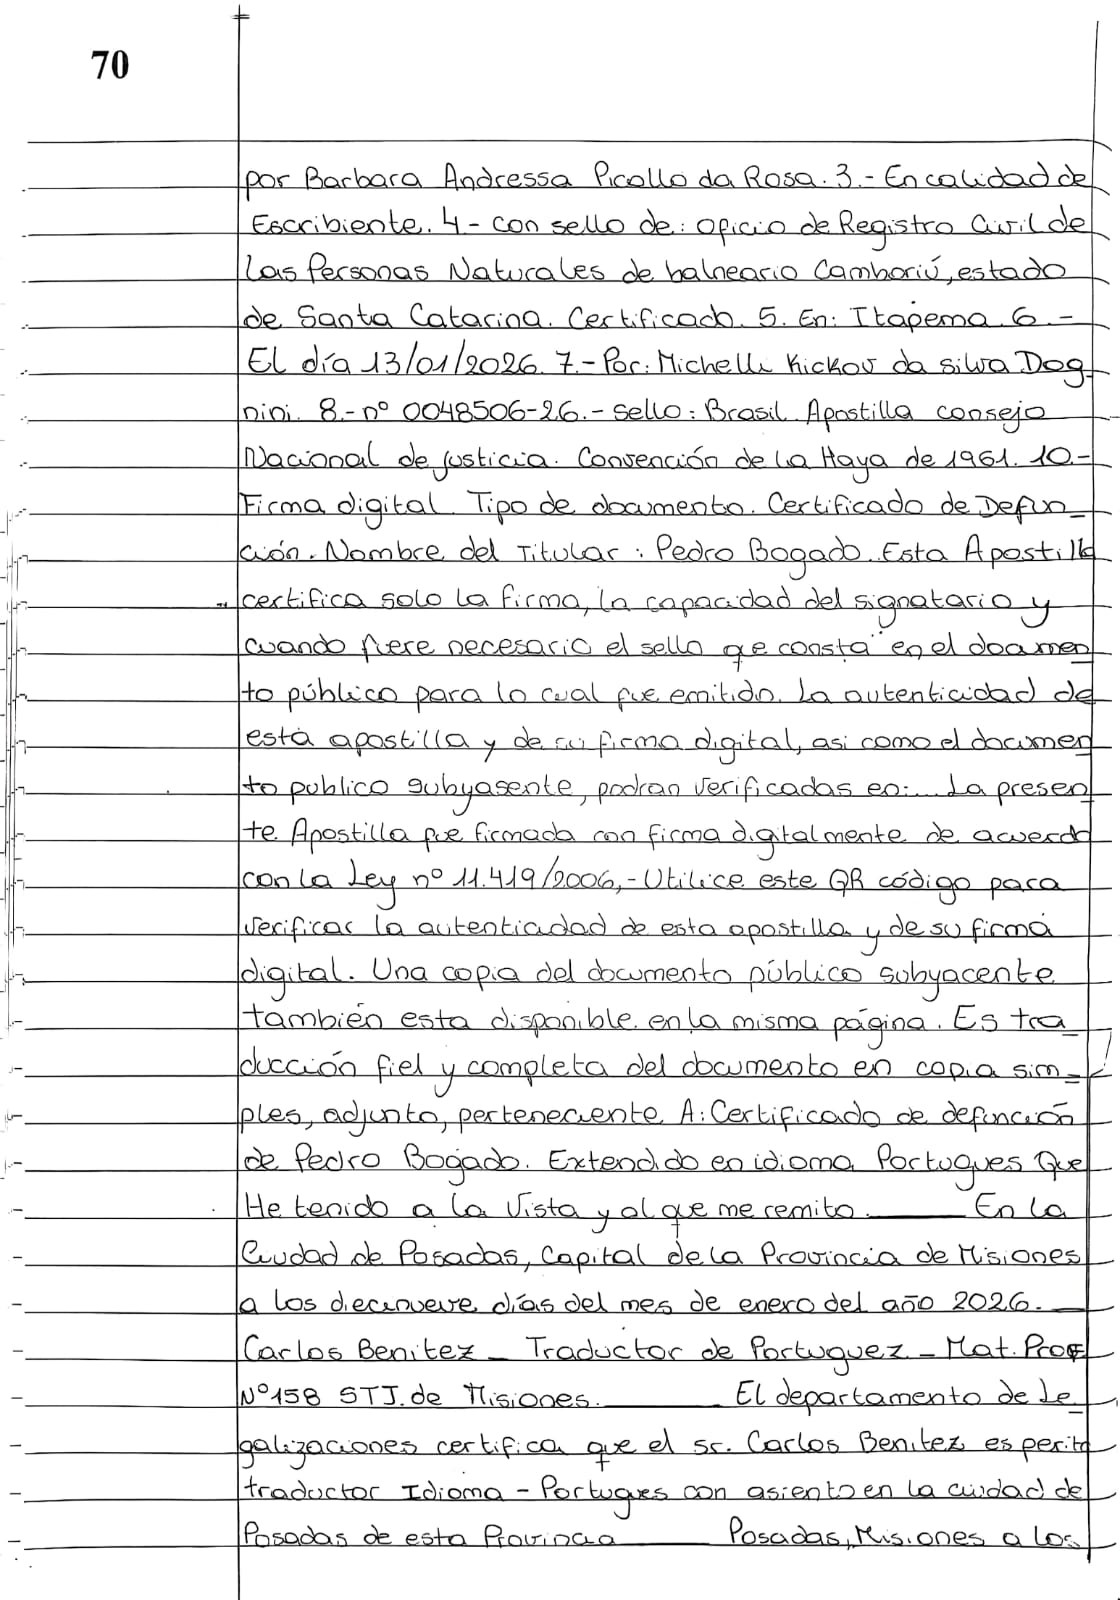 70
por Barbara Andressa Picollo da Rosa. 3.- En calidad de
Escribiente. 4.- con sello de: oficio de Registro Civil de
las Personas Naturales de balneario Camboriú, estado
de Santa Catarina. Certificado. 5. En: Itapema. 6.-
El día 13/01/2026. 7.- Por: Michelli Kickov da silva Dog
nini. 8.- nº 0048506-26.- sello: Brasil. Apostilla consejo
Nacional de justicia. Convención de la Haya de 1961. 10.-
Firma digital. Tipo de documento. Certificado de Defun_
ción. Nombre del Titular: Pedro Bogado. Esta Apostilla
certifica solo la firma, la capacidad del signatario y
cuando fuere necesario el sello que consta en el documen
to público para lo cual fue emitido. La autenticidad de
esta apostilla y de su firma digital, asi como el documen
to publico subyasente, podran verificadas en:... La presen
te Apostilla fue firmada con firma digitalmente de acuerdo
con la Ley nº 11.419/2006,- Utilice este QR código para
verificar la autenticidad de esta apostilla y de su firma
digital. Una copia del documento público subyacente
también esta disponible en la misma página. Es tra_
ducción fiel y completa del documento en copia sim_
ples, adjunto, perteneciente A: Certificado de defunción
de Pedro Bogado. Extendido en idioma Portugues Que
He tenido a la Vista y al que me remito. ____ En la
Ciudad de Posadas, Capital de la Provincia de Misiones
a los diecinueve días del mes de enero del año 2026. __
Carlos Benitez _ Traductor de Portuguez - Mat. Prof
Nº 158 STJ. de Misiones. ____ El departamento de Le_
galizaciones certifica que el sr. Carlos Benitez es perito
traductor Idioma - Portugues con asiento en la ciudad de
Posadas de esta Provincia ____ Posadas, Misiones a los